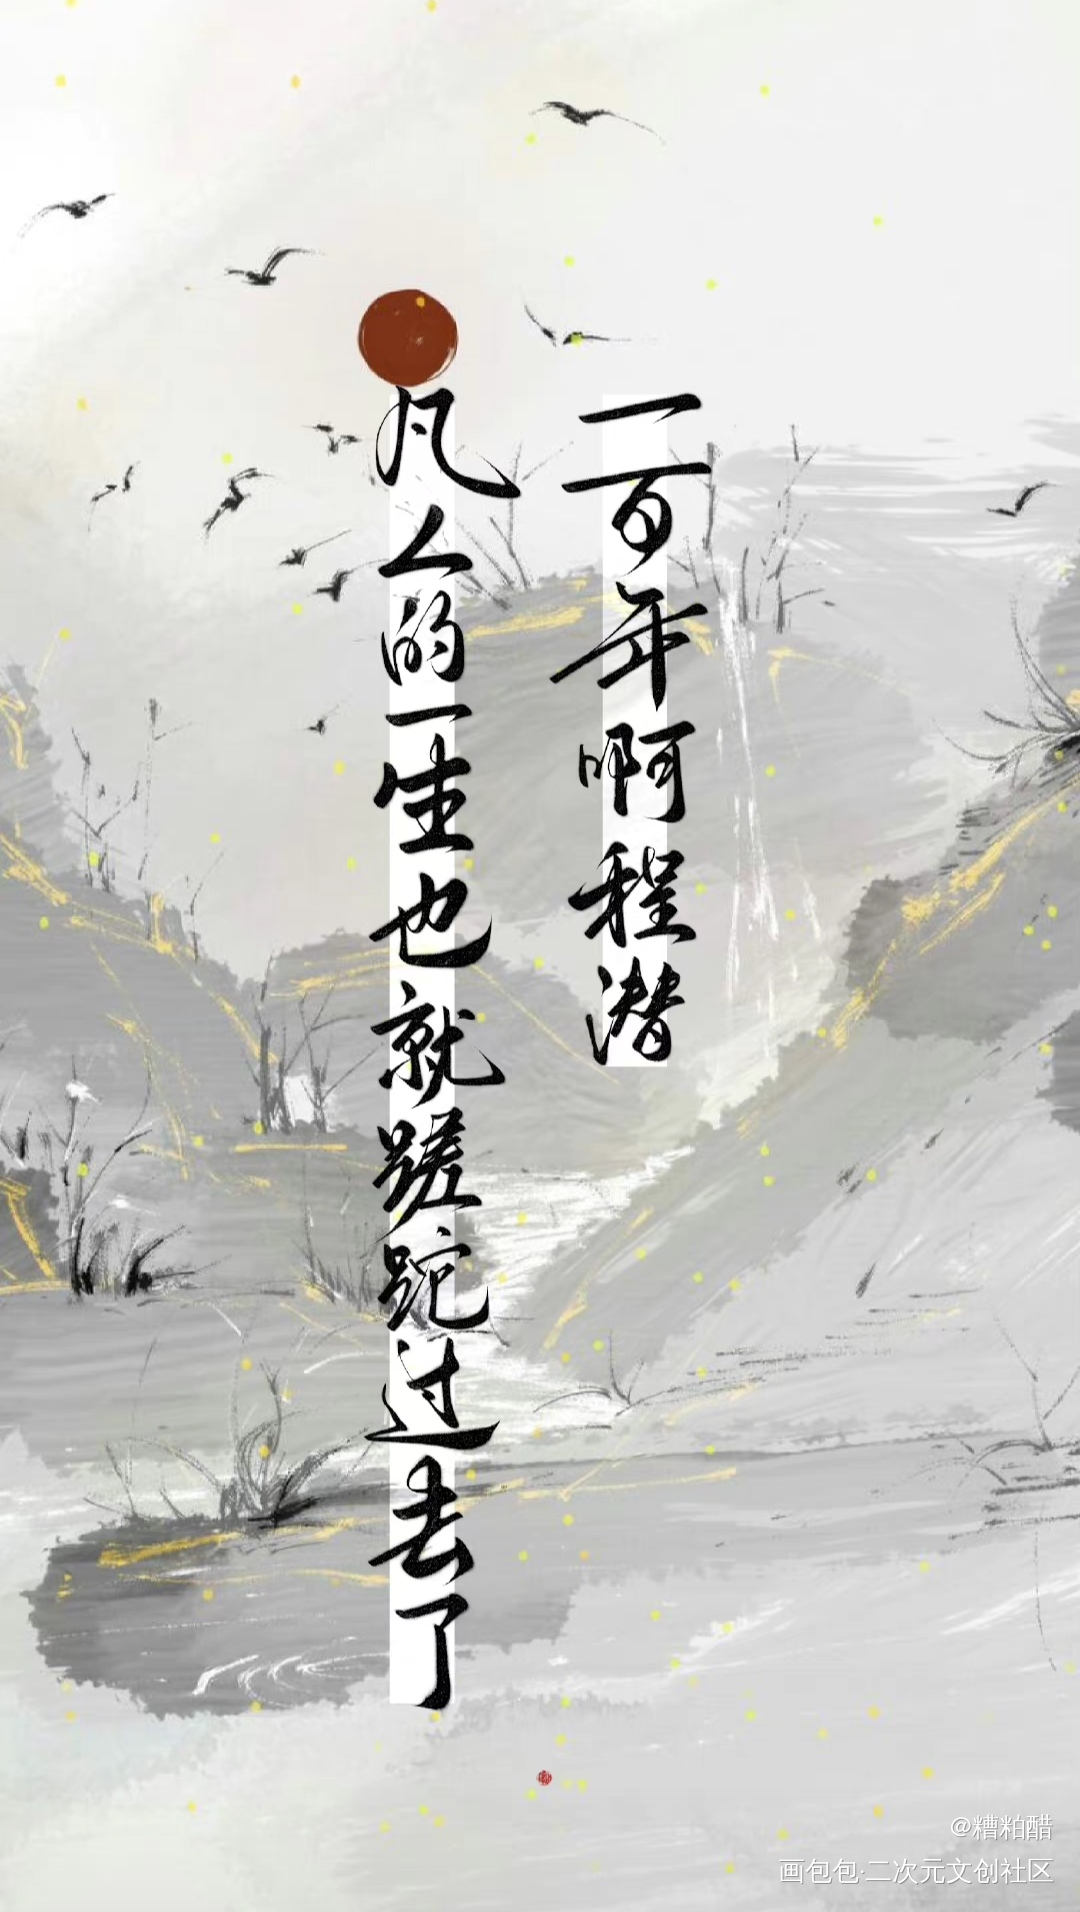 一百年啊程潜
凡人的一生也就蹉跎过去了
@糟粕醋
画包包·二次元文创社区